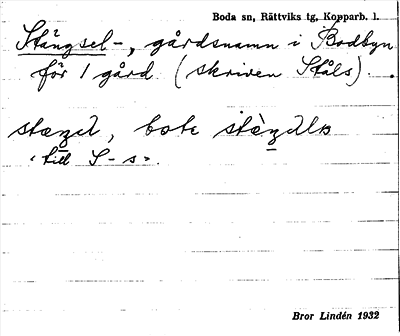 Boda sn, Rättviks tg, Kopparb. l.
Stängsel-, gårdsnamn i Bodbyn
för 1 gård. (skriven Ståls).
bote
"till S-s".
Bror Lindén 1932